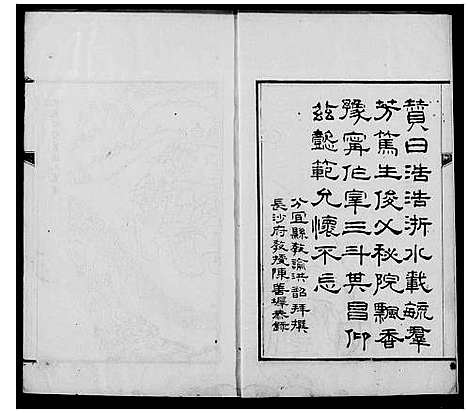 贊曰浩浩浙水載毓羣
芳篤生俊乂秘院飄香
豫甯作宰三斗其昌仰
茲懿範允懷不忘
分宜縣教諭洪韶拜撰
長沙府教授陳善墀恭錄